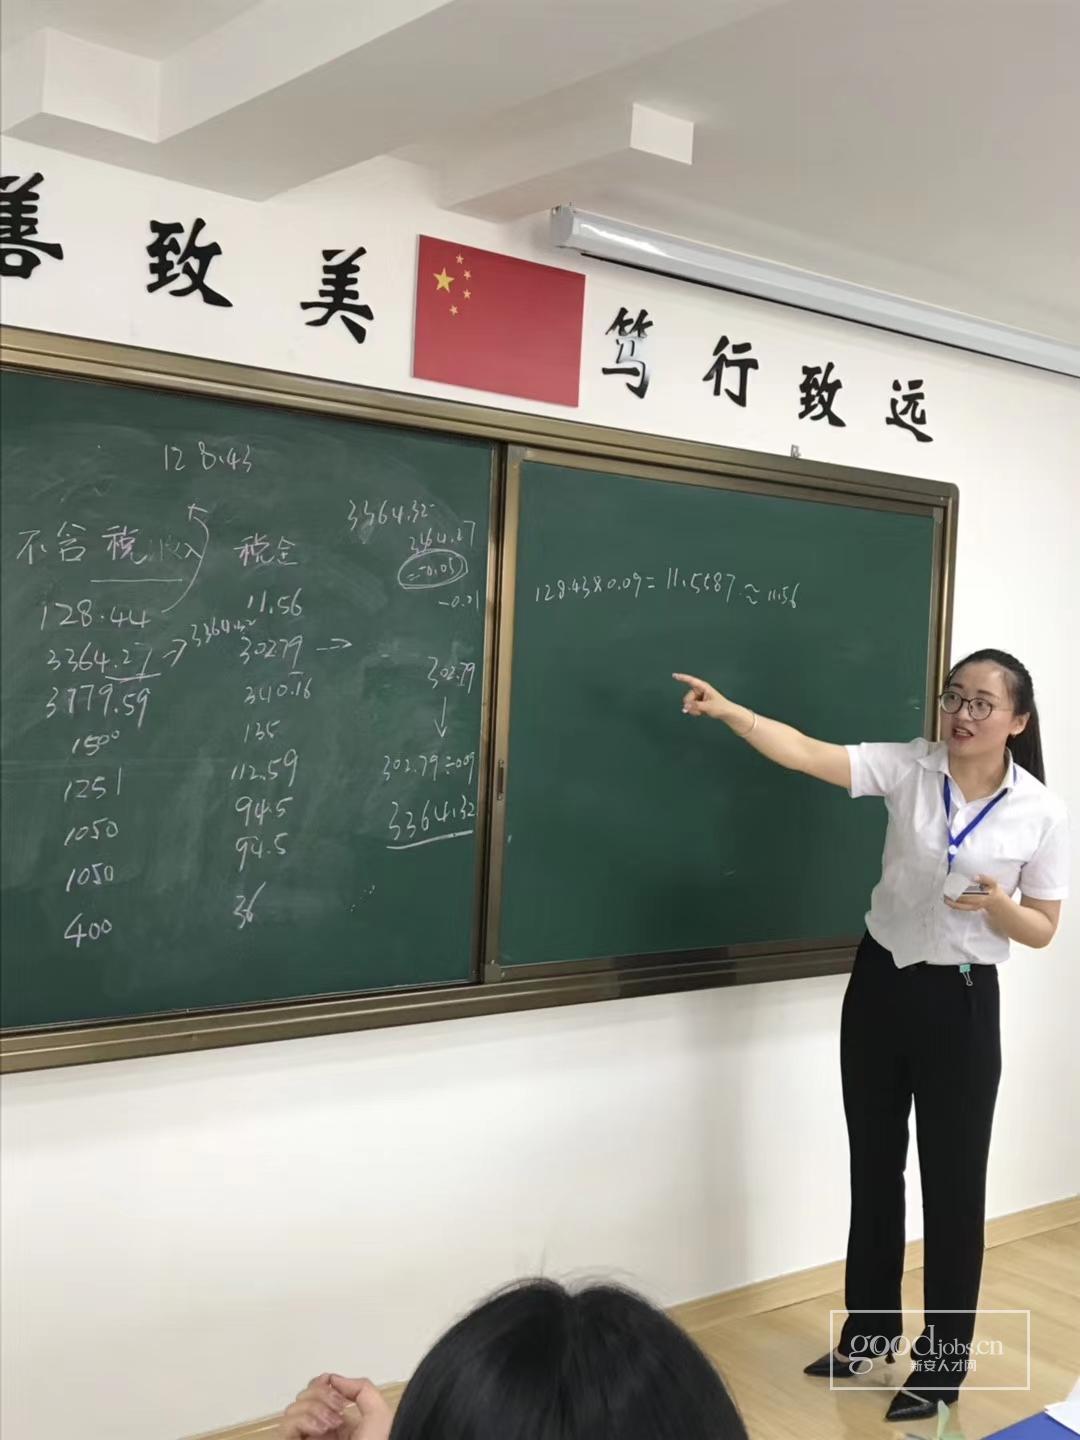 善致美 笃行致远
128.43
不含税收入 税金
128.44 11.56
3364.27 → 3364.32 302.79 →
3779.59 340.16
1500 135
1251 112.59
1050 94.5
1050 94.5
400 36
3364.32-
3364.27
=-0.05
-0.01
302.79
↓
302.79÷0.09
3364.32
128.43×0.09=11.5587≈11.56
goodjobs.cn
新安人才网